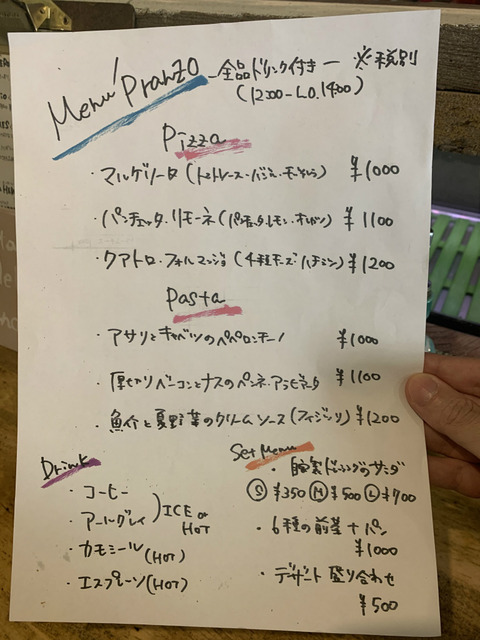 Menu Pranzo -全品ドリンク付き- ※税別
(1200-L.O.1400)
Pizza
・マルゲリータ(トマトソース・バジル・モッツァレラ) ¥1000
・パンチェッタ・リモーネ(パンチェッタ・レモン・) ¥1100
・クアトロ・フォルマッジョ(4種チーズ・ハチミツ) ¥1200
Pasta
・アサリとキャベツのペペロンチーノ ¥1000
・厚切りベーコンとナスのペンネ・アラビアータ ¥1100
・魚介と夏野菜のクリームソース(フィジッリ) ¥1200
Drink
・コーヒー
・アールグレイ
ICE or HOT
・カモミール(HOT)
・エスプレッソ(HOT)
Set Menu
・自家製ドレッシングのサラダ
Ⓢ ¥350 Ⓜ ¥500 Ⓛ ¥700
・6種の前菜+パン
¥1000
・デザート盛り合わせ
¥500